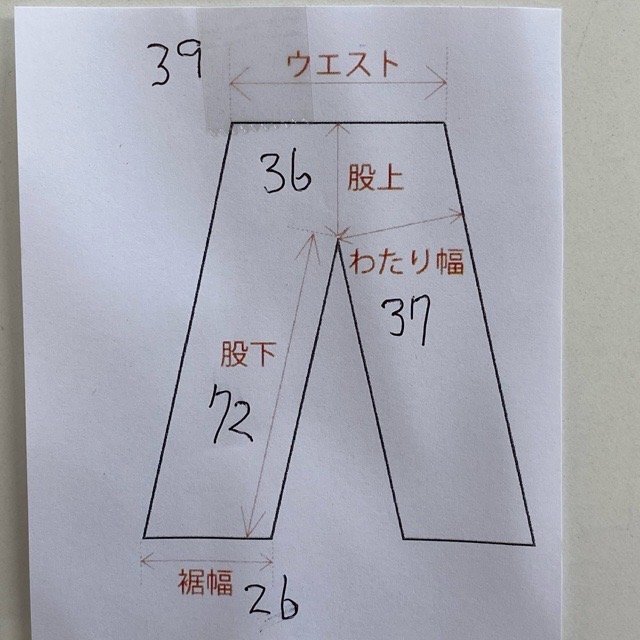 39
ウエスト
36
股上
わたり幅
37
股下
72
裾幅
26